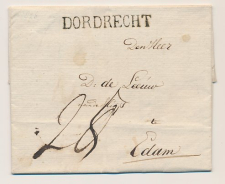 DORDRECHT
Den Heer
D. de Leeuw
te
Edam